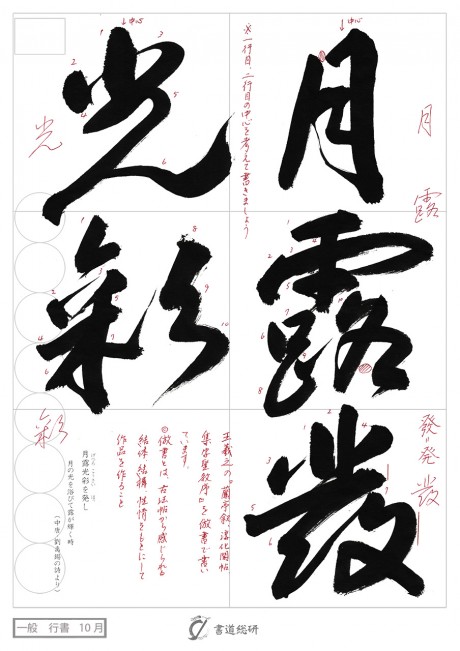 月露發
光彩
中心
中心
月
露
發=発
光
彩
※一行目、二行目の中心を考えて書きましょう
王羲之の「蘭亭叙」淳化閣帖
集字聖教序」を倣書で書い
ています。
◎倣書とは、古法帖から感じられる
結体、結構、性情をもとにして
作品を作ること
月露光彩を発し
月の光を浴びて露が輝く時
(中唐・劉禹錫の詩より)
一般 行書 10月
書道総研